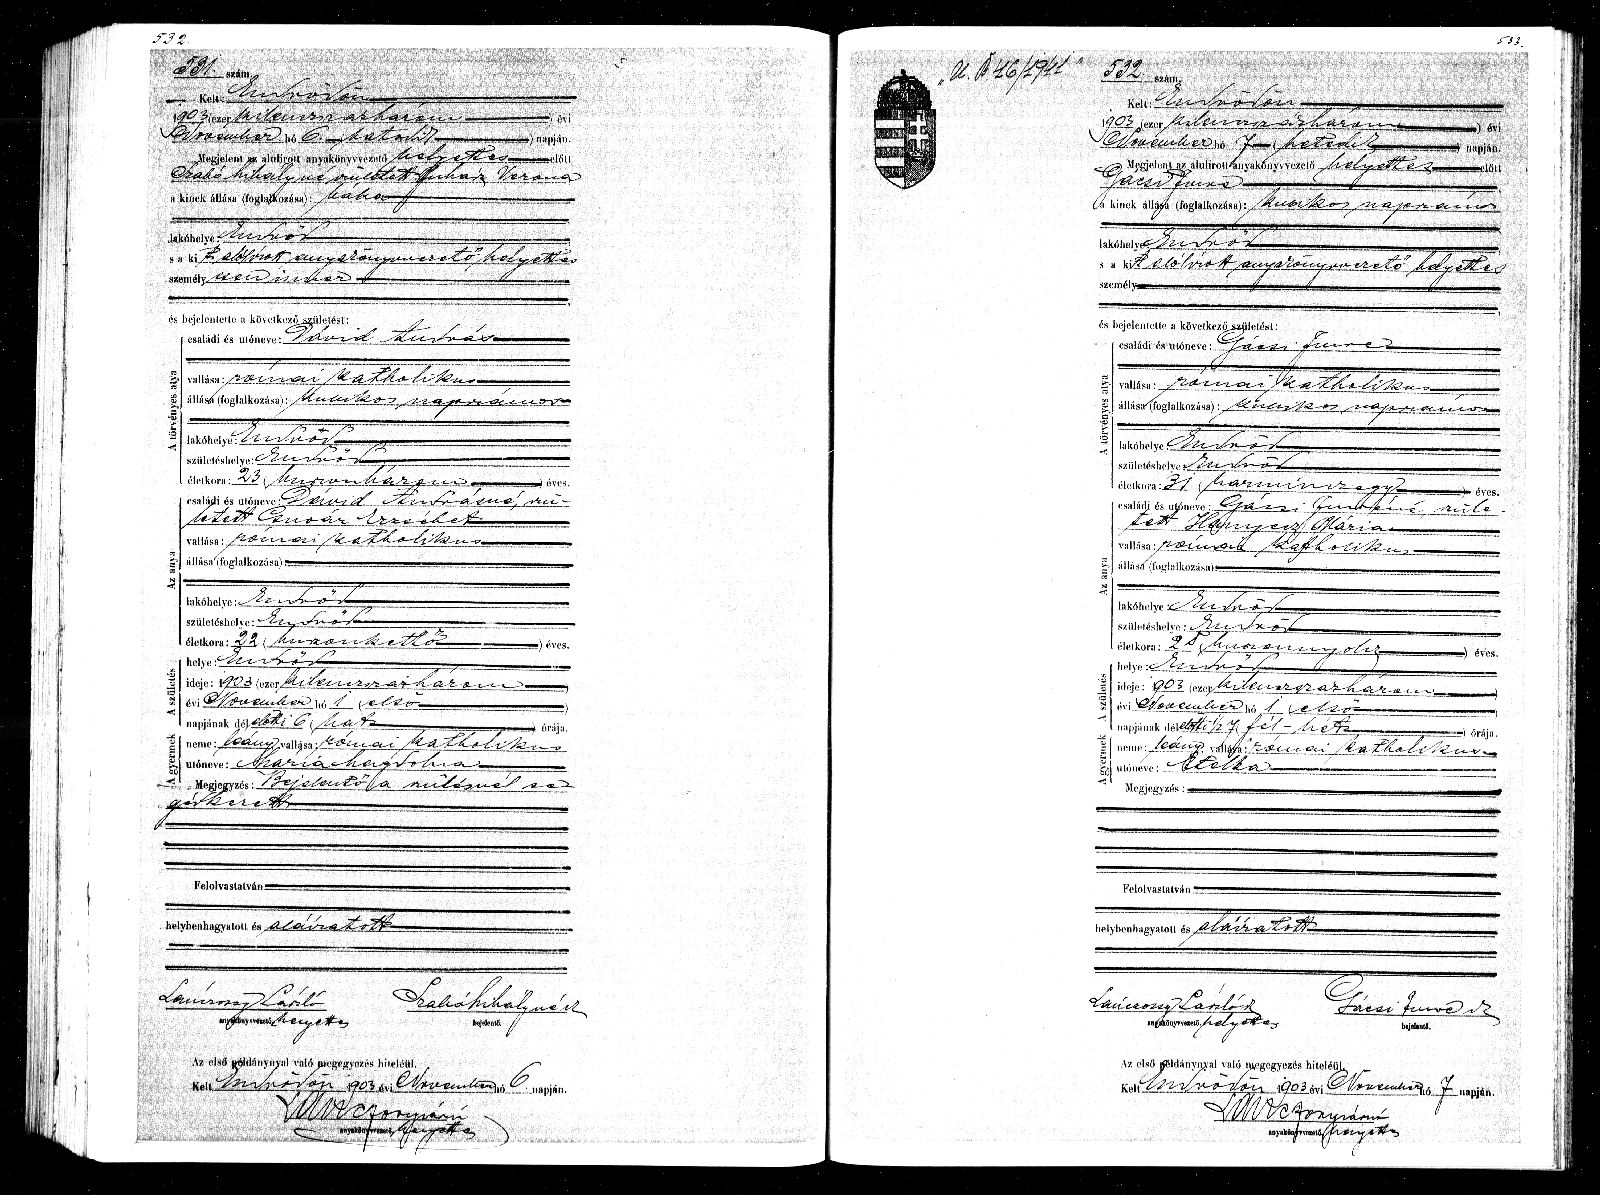 532.
531. szám.
Kelt: Endrődön
1903 (ezer kilenczszázhárom ) évi
November hó 6. ( hatodik ) napján.
Megjelent az alulirott anyakönyvvezető helyettes előtt
Szabó Mihályné született Juhász Verona
a kinek állása (foglalkozása): bába
lakóhelye: Endrőd
s a kit alólirott anyakönyvvezető helyettes
személyesen ismer
és bejelentette a következő születést:
A törvényes atya
családi és utóneve: Dávid András
vallása: római katholikus
állása (foglalkozása): kubikos napszámos
lakóhelye: Endrőd
születéshelye: Endrőd
életkora: 23 ( huszonhárom ) éves.
Az anya
családi és utóneve: Dávid Andrásné, szü-
letett Erzsébet
vallása: római katholikus
állása (foglalkozása):
lakóhelye: Endrőd
születéshelye: Endrőd
életkora: 22 ( huszonkettő ) éves.
A születés
helye: Endrőd
ideje: 1903 (ezer kilenczszázhárom )
évi November hó 1 ( első )
napjának délelőtti 6 ( hat ) órája.
A gyermek
neme: leány vallása: római katholikus
utóneve: Mária Magdolna
Megjegyzés: Bejelentő a szülésnél se-
gédkezett
Felolvastatván
helybenhagyatott és aláiratott
László Szabó Mihályné
anyakönyvvezető helyettes bejelentő.
Az első példánynyal való megegyezés hiteléül.
Kelt Endrődön 1903 évi November hó 6 napján.
anyakönyvvezető helyettes
533.
U. B 46/1941
532 szám.
Kelt: Endrődön
1903 (ezer kilenczszázhárom ) évi
November hó 7 ( hetedik ) napján.
Megjelent az alulirott anyakönyvvezető helyettes előtt
Gácsi Imre
a kinek állása (foglalkozása): kubikos napszámos
lakóhelye Endrőd
s a kit alólirott anyakönyvvezető helyettes
személy
és bejelentette a következő születést:
A törvényes atya
családi és utóneve: Gácsi Imre
vallása: római katholikus
állása (foglalkozása): kubikos napszámos
lakóhelye Endrőd
születéshelye: Endrőd
életkora: 31 ( harminczegy ) éves.
Az anya
családi és utóneve: Gácsi Imréné, szüle-
tett Hanyecz Mária
vallása: római katholikus
állása (foglalkozása):
lakóhelye Endrőd
születéshelye: Endrőd
életkora: 28 ( huszonnyolcz ) éves.
A születés
helye: Endrőd
ideje: 1903 (ezer kilenczszázhárom )
évi November hó 1 ( első )
napjának délelőtti ½ 7 ( fél-hét ) órája.
A gyermek
neme: leány vallása: római katholikus
utóneve: Etelka
Megjegyzés:
Felolvastatván
helybenhagyatott és aláiratott
László Gácsi Imre
anyakönyvvezető helyettes bejelentő.
Az első példánynyal való megegyezés hiteléül.
Kelt Endrődön 1903 évi November hó 7 napján.
anyakönyvvezető helyettes